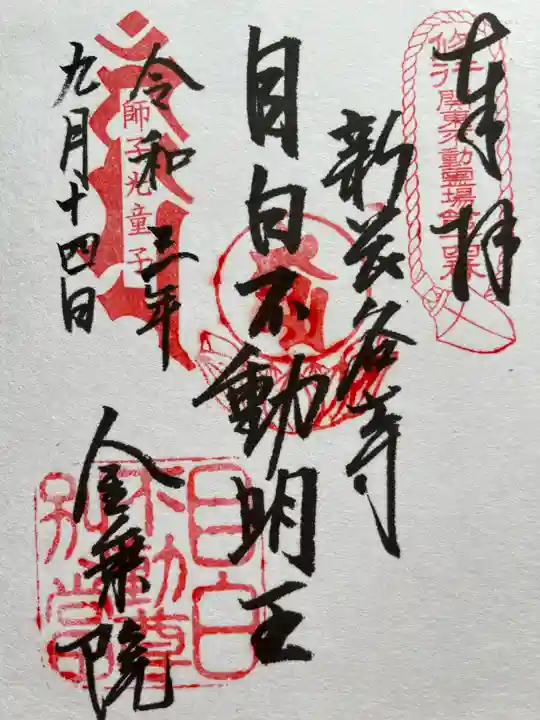 奉拝
修行
関東不動靈場
新長谷寺
目白不動明王
令和三年
師子光童子
九月十四日
金乗院
目白
不動尊
別當